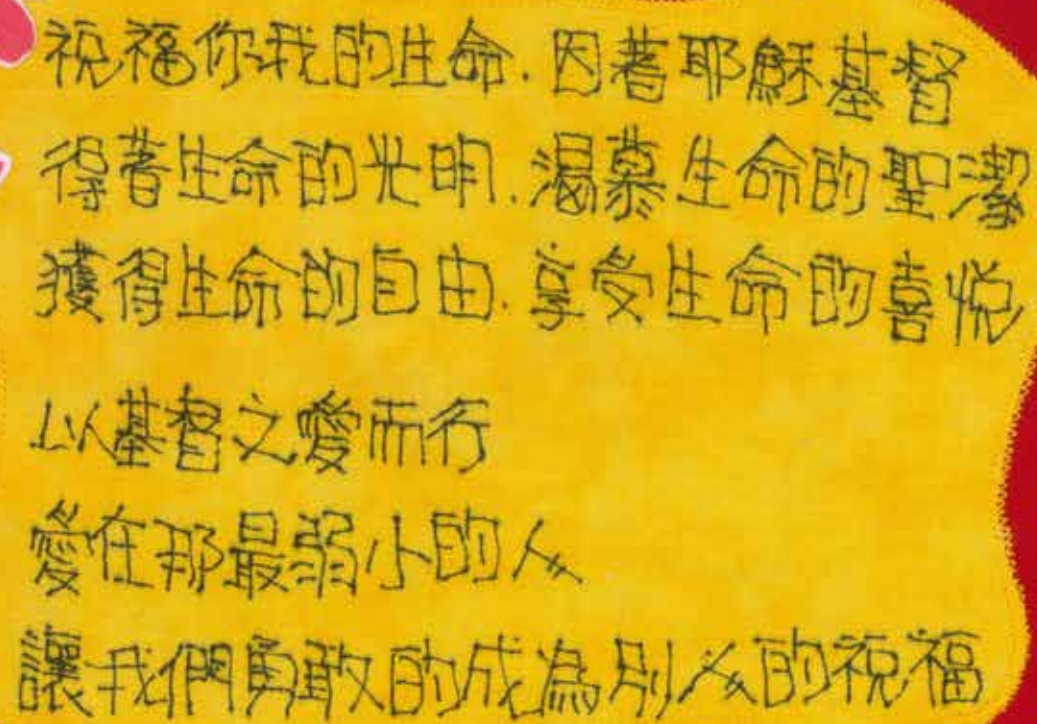 祝福你我的生命.因著耶穌基督
得著生命的光明.渴慕生命的聖潔
獲得生命的自由.享受生命的喜悅
以基督之愛而行
愛在那最弱小的人
讓我們勇敢的成為別人的祝福